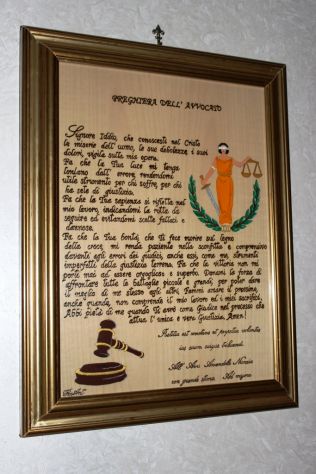 PREGHIERA DELL' AVVOCATO
Signore Iddio, che conoscesti nel Cristo
le miserie dell' uomo, le sue debolezze, i suoi
dolori, vigila sulla mia opera.
Fa che la Tua luce mi tenga
lontano dall' errore, rendendomi
utile strumento per chi soffre, per chi
ha sete di giustizia.
Fa che la Tua sapienza si rifletta nel
mio lavoro, indicandomi la rotta da
seguire ed evitandomi scelte fallaci e
dannose.
Fa che la Tua bontà, che Ti fece morire sul legno
della croce, mi renda paziente nella sconfitta e comprensivo
davanti agli errori dei giudici, anche essi, come me, strumenti
imperfetti della giustizia terrena. Fa che la vittoria non mi
porti mai ad essere orgoglioso e superbo. Donami la forza di
affrontare tutte le battaglie piccole e grandi, per poter dare
il meglio di me stesso agli altri. Fammi amare il prossimo,
anche quando, non comprende il mio lavoro ed i miei sacrifici.
Abbi pietà di me quando Ti avrò come Giudice nel processo che
attua l' unica e vera Giustizia. Amen!
Iustitia est constans et perpetua voluntas
ius suum cuique tribuendi.
All' Avv.
con grande stima